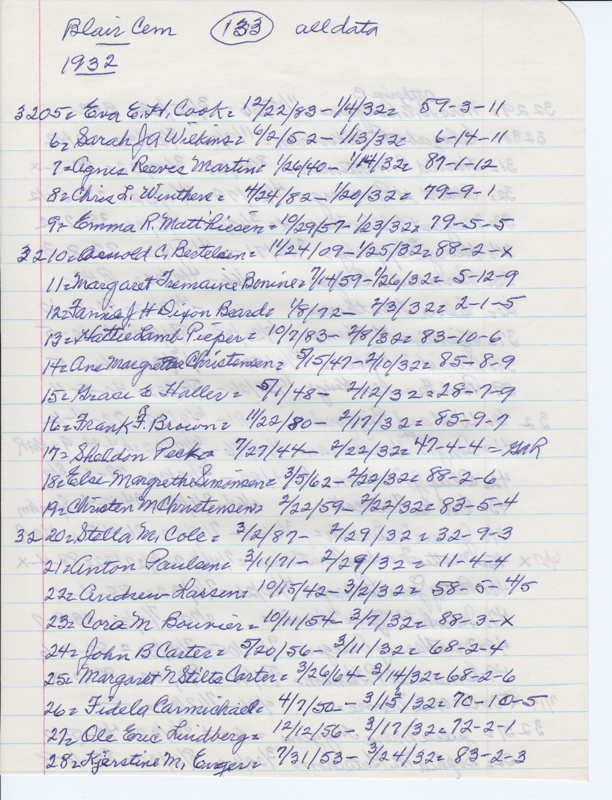 Blair Cem 133 all data
1932
3205= Eva E. H. Cook= 12/22/83 - 1/4/32= 59-3-11
6= Sarah J A Wilkins= 6/2/52 - 1/13/32= 6-14-11
7= Agnes Reeves Martin= 1/26/40 - 1/14/32= 87-1-12
8= Chris L. Winther= 4/24/82 - 1/20/32= 79-9-1
9= Emma R. Matthiesen= 10/29/57 - 1/23/32= 79-5-5
3210= C. Bertelsen= 11/24/09 - 1/25/32= 88-2-x
11= Margaret Tremaine Bonine= 7/14/59 - 1/26/32= 5-12-9
12= Fannie J H Dixon Beard= 1/8/72 - 2/3/32= 2-1-5
13= Hattie Lamb Pieper= 10/7/83 - 2/8/32= 83-10-6
14= Ane Margrethe Christensen= 5/15/47 - 2/10/32= 85-8-9
15= Grace E Haller= 5/1/48 - 2/12/32= 28-7-9
16= Frank F. Brown= 11/22/80 - 2/17/32= 85-9-7
17= Sheldon Peck 7/27/44 - 2/22/32= 47-4-4 = GAR
18= Else Margrethe Simonson= 3/5/62 - 2/22/32= 88-2-6
19= Christen M Christensen= 2/22/59 - 2/22/32= 83-5-4
3220= Stella M. Cole= 3/2/87 - 2/29/32= 32-9-3
21= Anton Paulsen= 3/11/71 - 2/29/32= 11-4-4
22= Andrew Larsen= 10/15/42 - 3/2/32= 58-5-4/5
23= Cora M Bouvier= 10/11/54 - 3/7/32= 88-3-x
24= John B Carter= 5/20/56 - 3/11/32= 68-2-4
25= Margaret N Stilts Carter= 3/26/64 - 3/14/32= 68-2-6
26= Fidela Carmichael= 4/7/50 - 3/15/32= 70-10-5
27= Ole Eric Lindberg= 12/12/56 - 3/17/32= 72-2-1
28= Kjerstine M. 7/31/53 - 3/24/32= 83-2-3